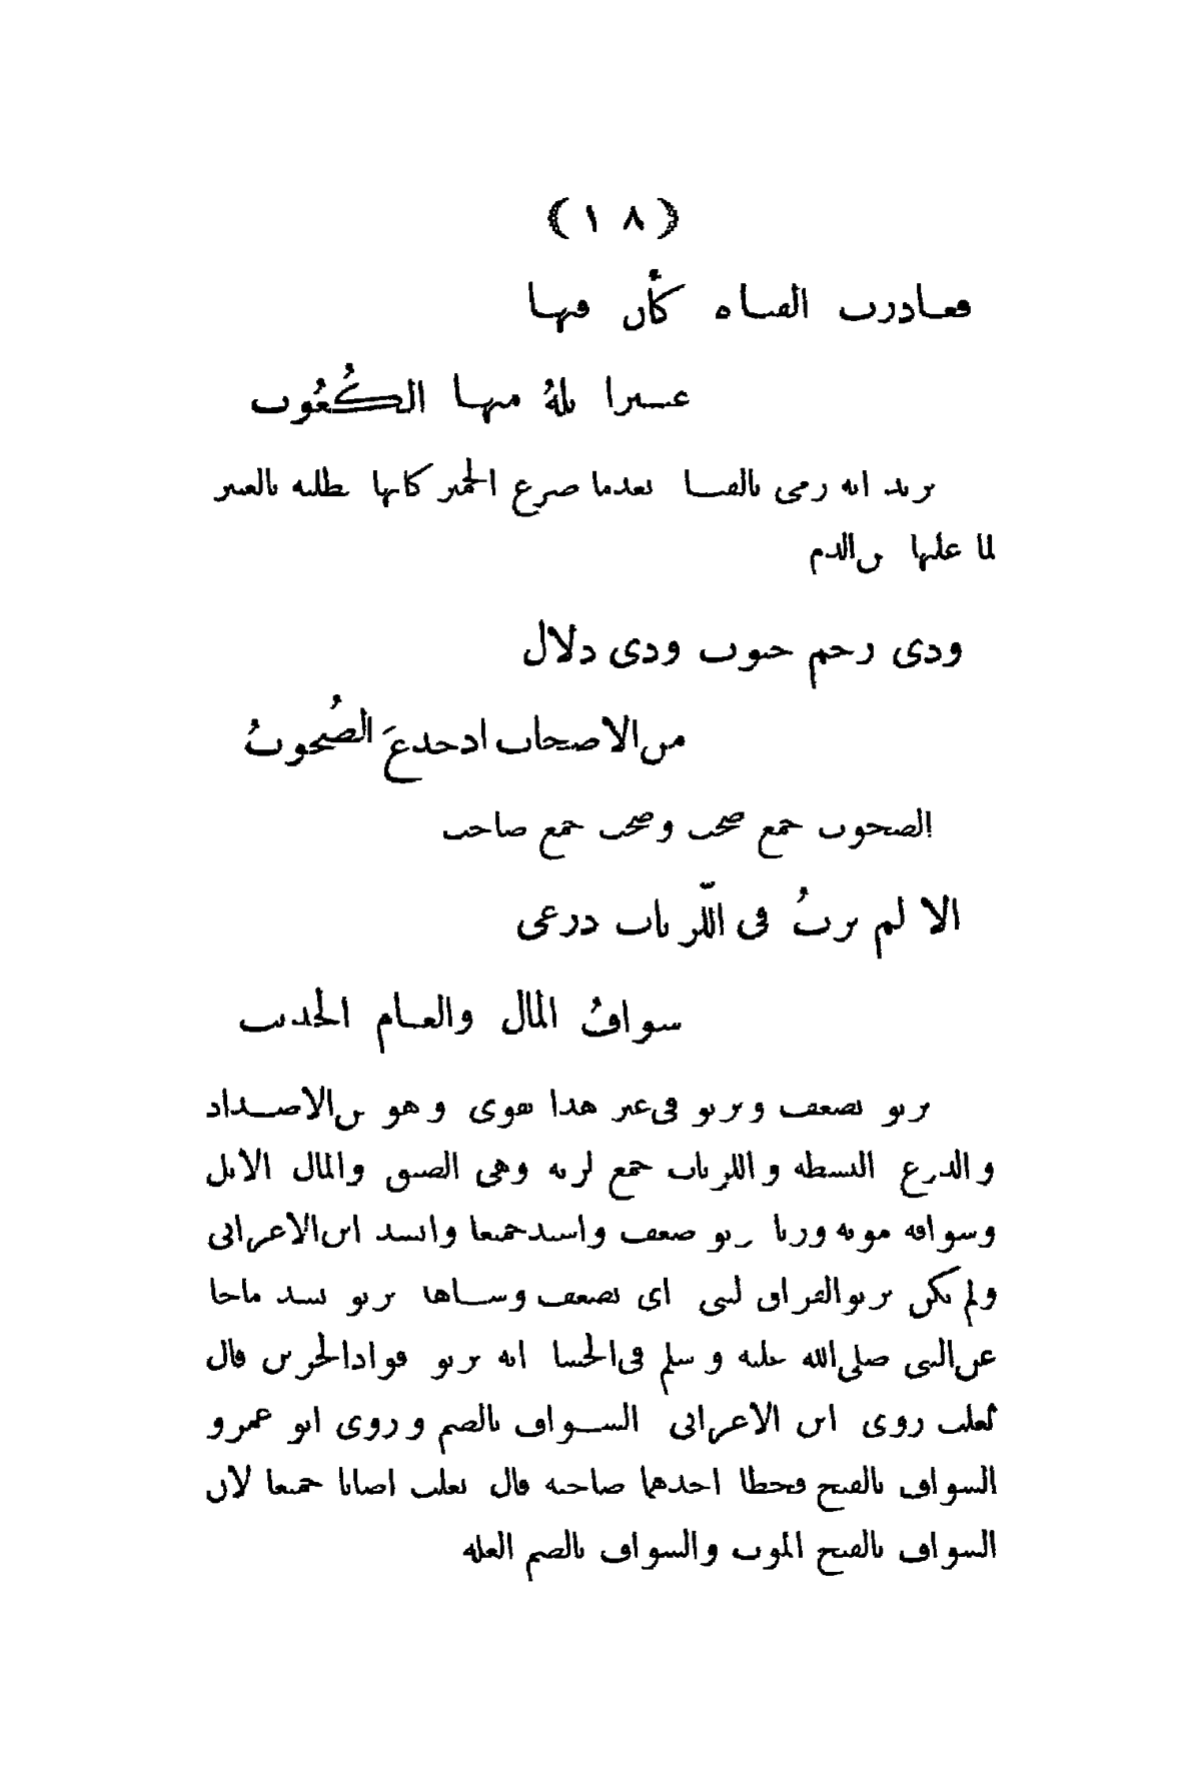 (١٨)
فغادرت القناة كأن فيها
عبيرا بلهُ منها الكُعُوب
يريد انه رمى بالقنا بعدما صرع الحمير كانها بالعبير
لما عليها من الدم
وذى رحم حبوت وذى دلال
من الاصحاب اذ خدعَ الصُحوبُ
الصحوب جمع صحب وصحب جمع صاحب
الا لم يرتُ فى اللّزبات ذرعى
سوافُ المال والعام الجديب
يرتو يضعف ويرتو فى غير هذا يقوى وهو من الاضداد
والذرع البسطة واللزبات جمع لزبة وهى الضيق والمال الابل
وسوافه موته ورتا يرتو ضعف واشتد جميعا وانشد ابن الاعرابى
ولم يكن يرتو الفراق لبى اى يضعف يرتو يشد ما جا
عن النبى صلى الله عليه وسلم فى الحسا انه يرتو فواد الحزين قال
ثعلب روى ابن الاعرابى السواف بالضم وروى ابو عمرو
السواف بالفتح فخطا احدهما صاحبه قال ثعلب اصابا جميعا لان
السواف بالفتح الموت والسواف بالضم العلة